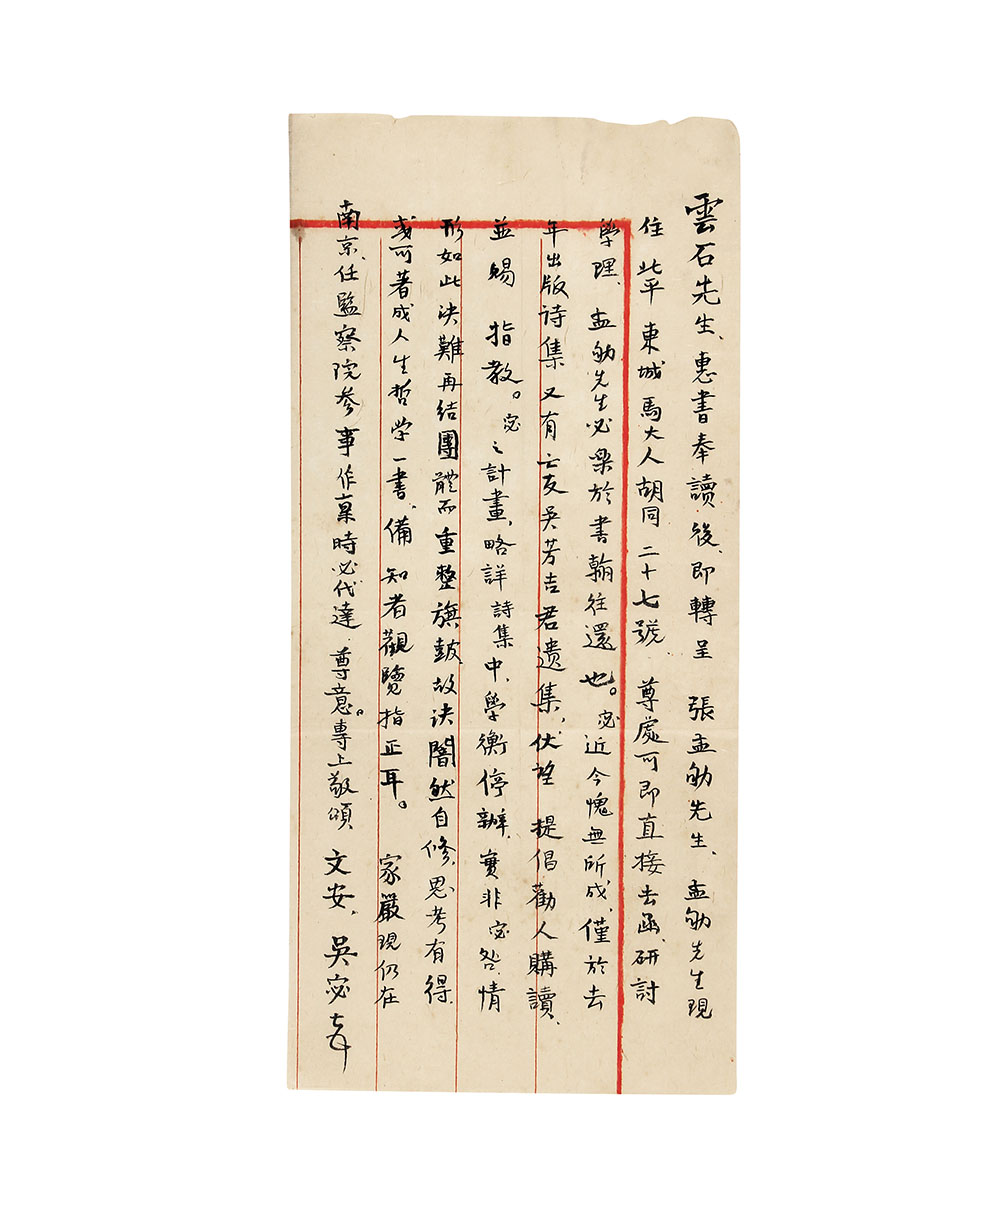 雲石先生、惠書奉讀後、即轉呈 張孟劬先生、孟劬先生現
住 北平 東城馬大人胡同二十七號 尊處可即直接去函、研討
學理、孟劬先生必樂於書翰往還也。宓近今愧無所成、僅於去
年出版詩集 又有亡友吳芳吉君遺集、伏望 提倡勸人購讀、
並賜 指教。宓之計畫、略詳詩集中、學衡停辦、實非宓咎、情
形如此決難再結團體而重整旗鼓、故決闇然自修、思考有得、
或可著成人生哲学一書、備 知者觀覽指正耳。 家嚴現仍在
南京、任監察院參事作稟時必代達 尊意。專上敬頌 文安、吳宓